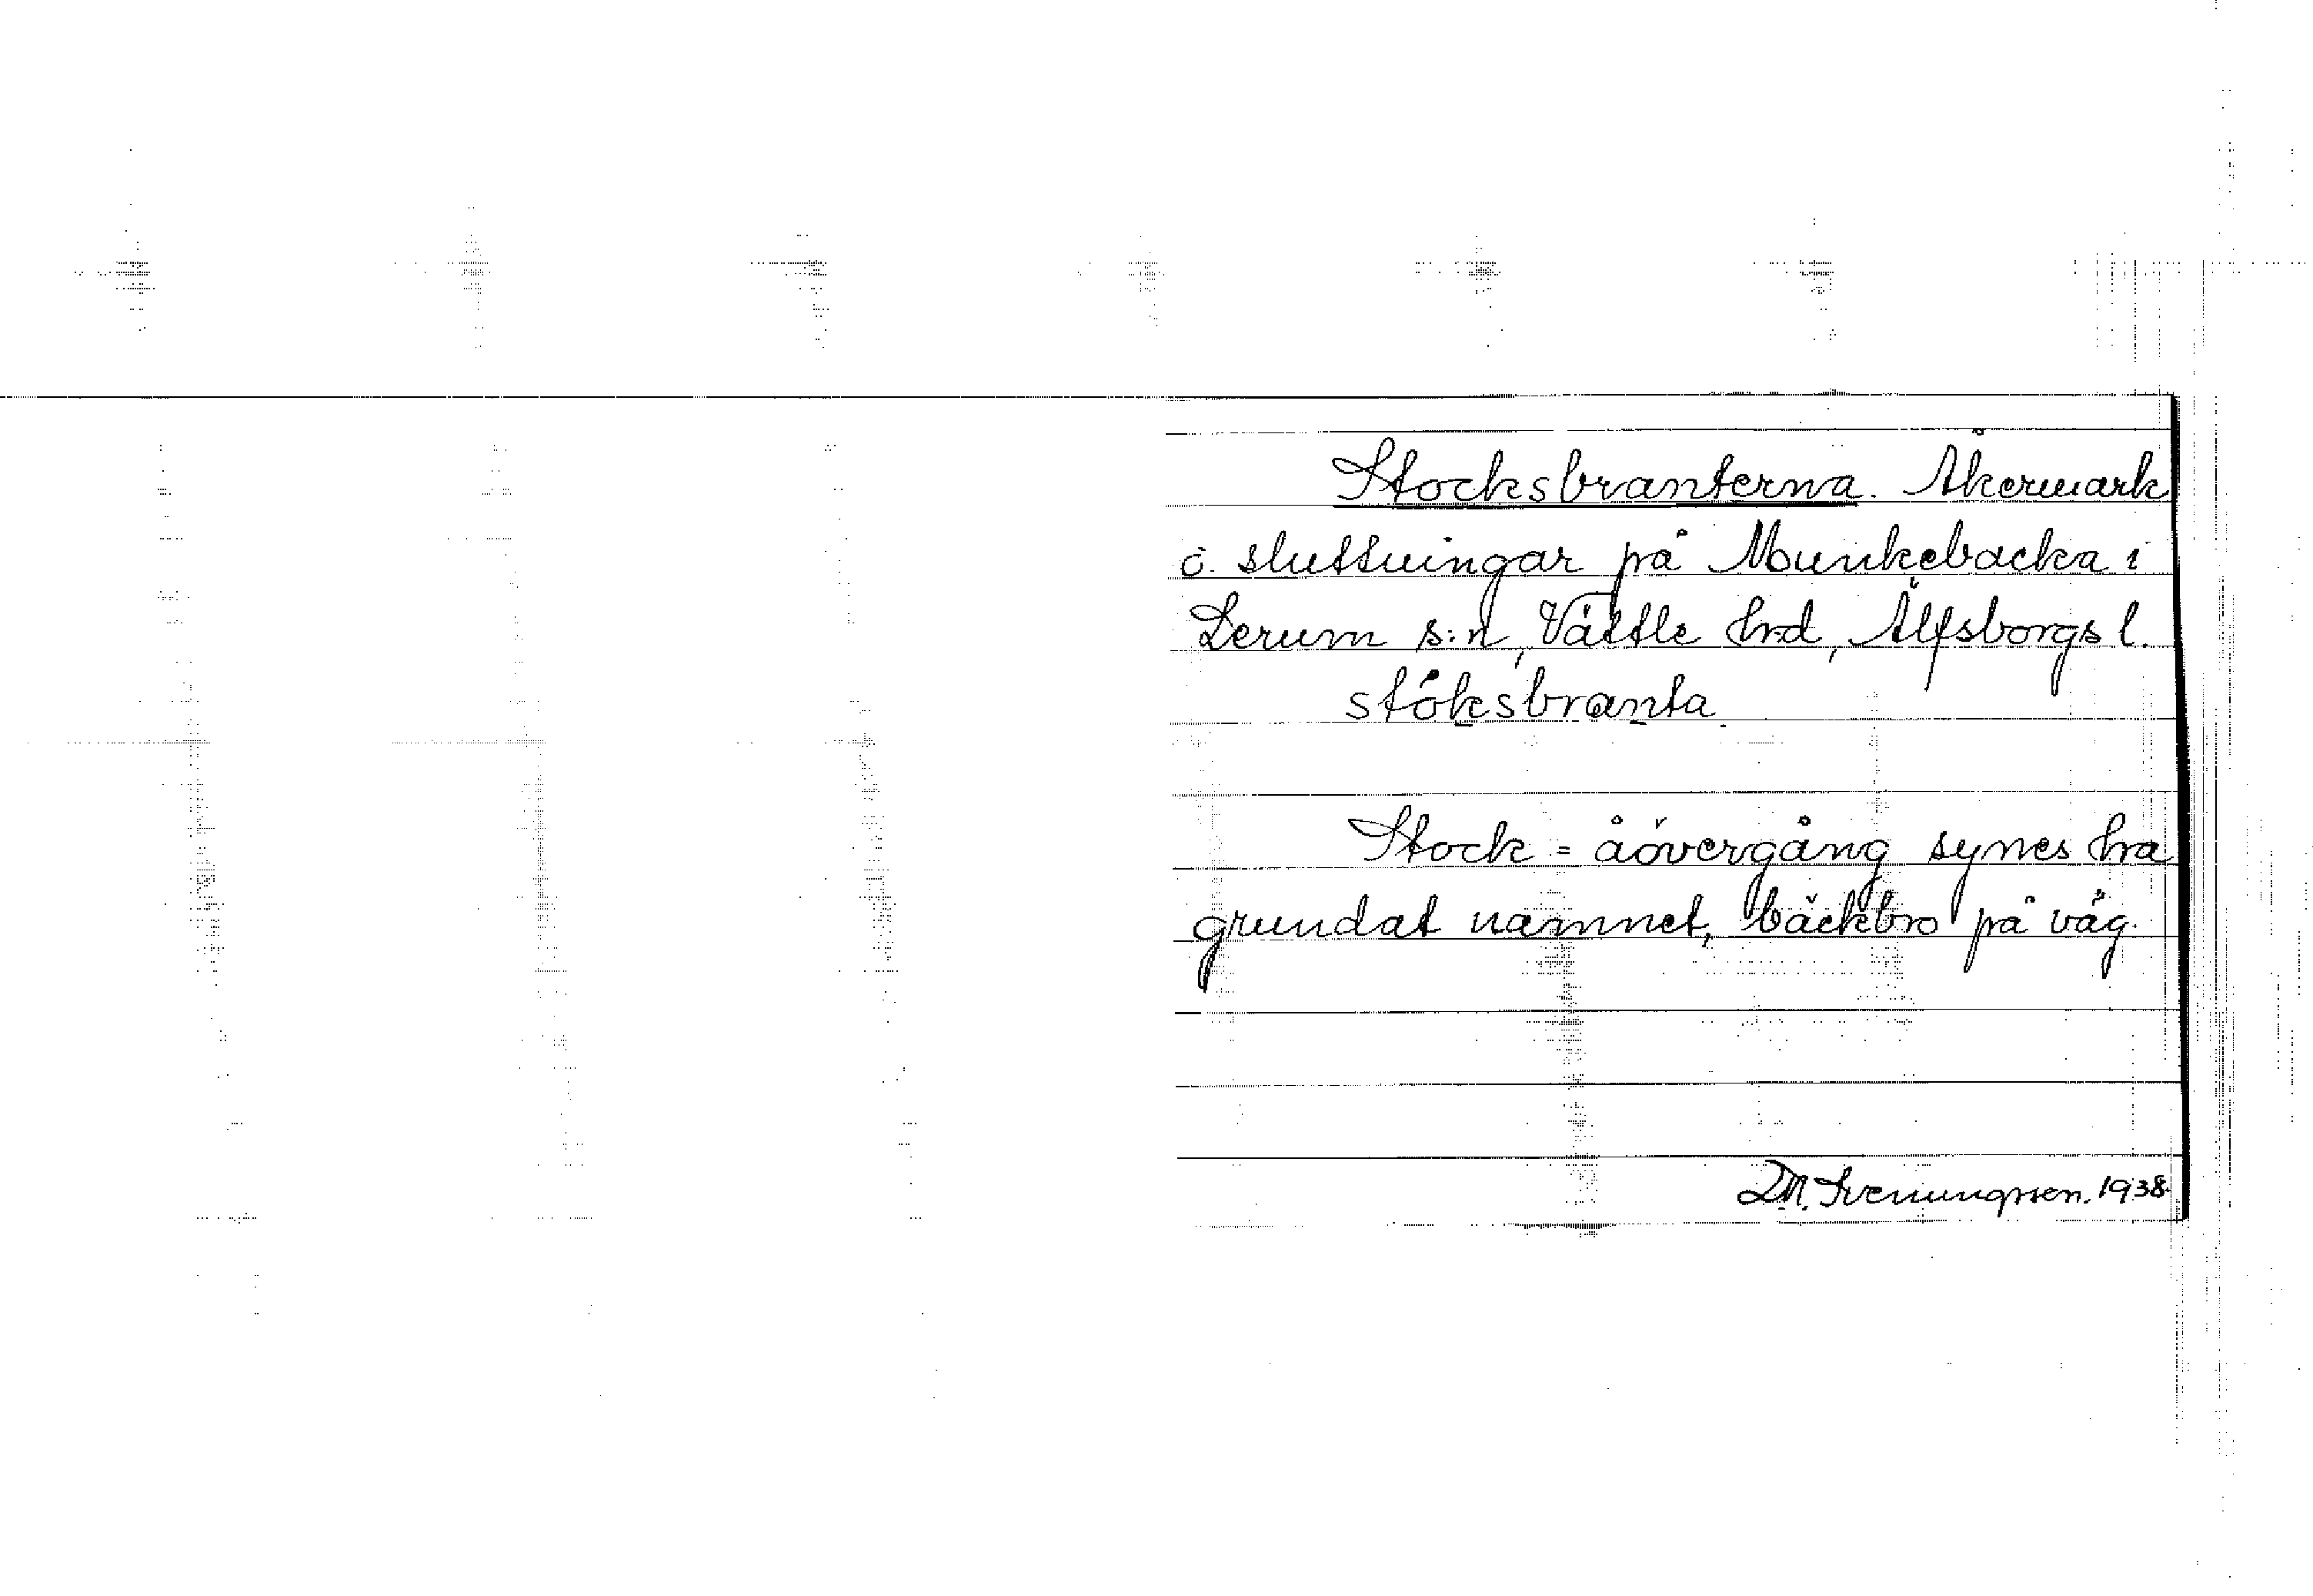 Stocksbranterna. Åkermark
o. sluttningar på Munkebacka i
Lerum s:n, Vättle hrd, Älfsborgs l.
stöksbranta
Stock = åövergång synes ha
grundat namnet, bäckbro på väg.
D.M. Svenungsson. 1938.